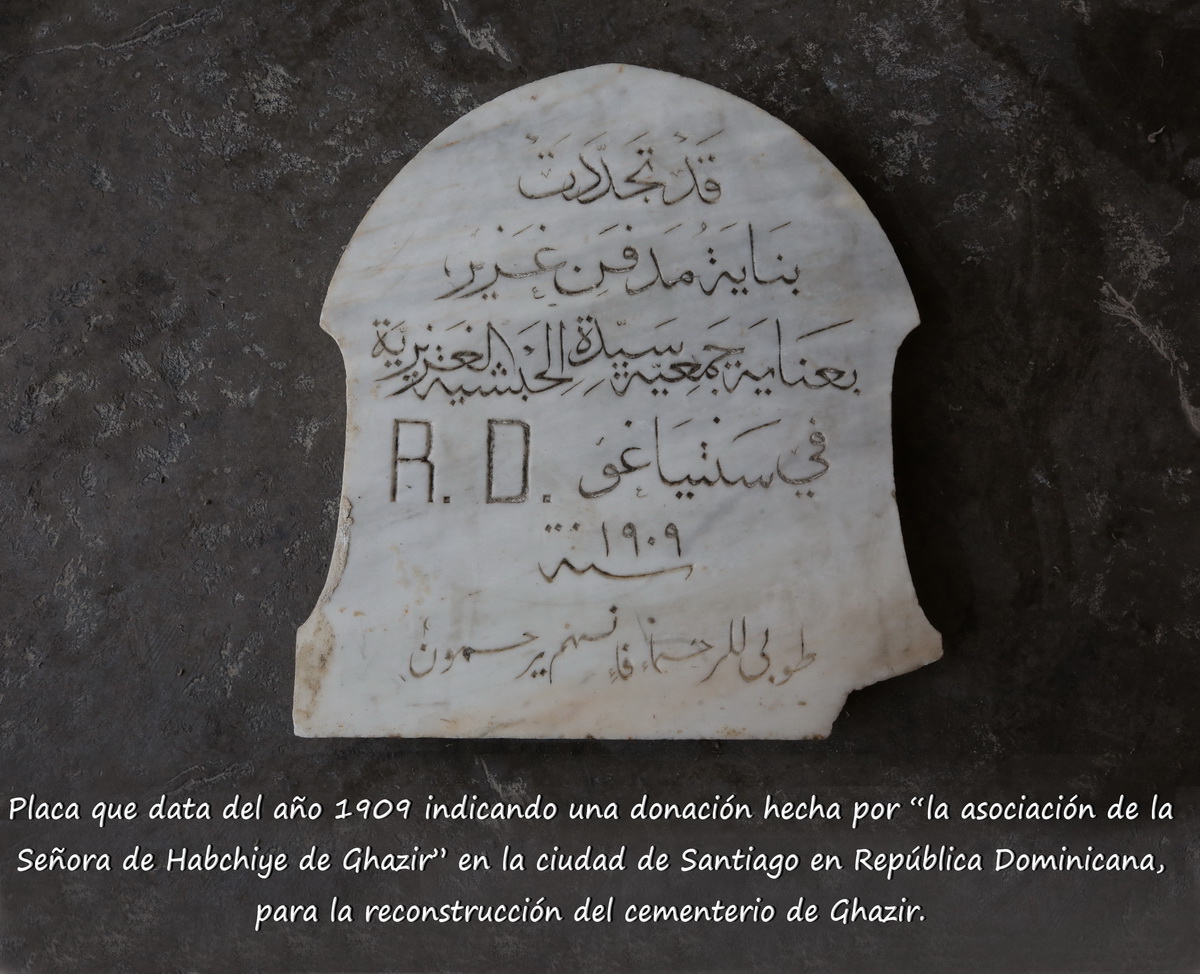 قد تجدّدت
بناية مدفن غزير
بعناية جمعيّة سيّدة الحبشية الغزيريّة
في سنتياغو R. D.
سنة ١٩٠٩
طوبى للرحماء فإنهم يرحمون
Placa que data del año 1909 indicando una donación hecha por “la asociación de la
Señora de Habchiye de Ghazir” en la ciudad de Santiago en República Dominicana,
para la reconstrucción del cementerio de Ghazir.